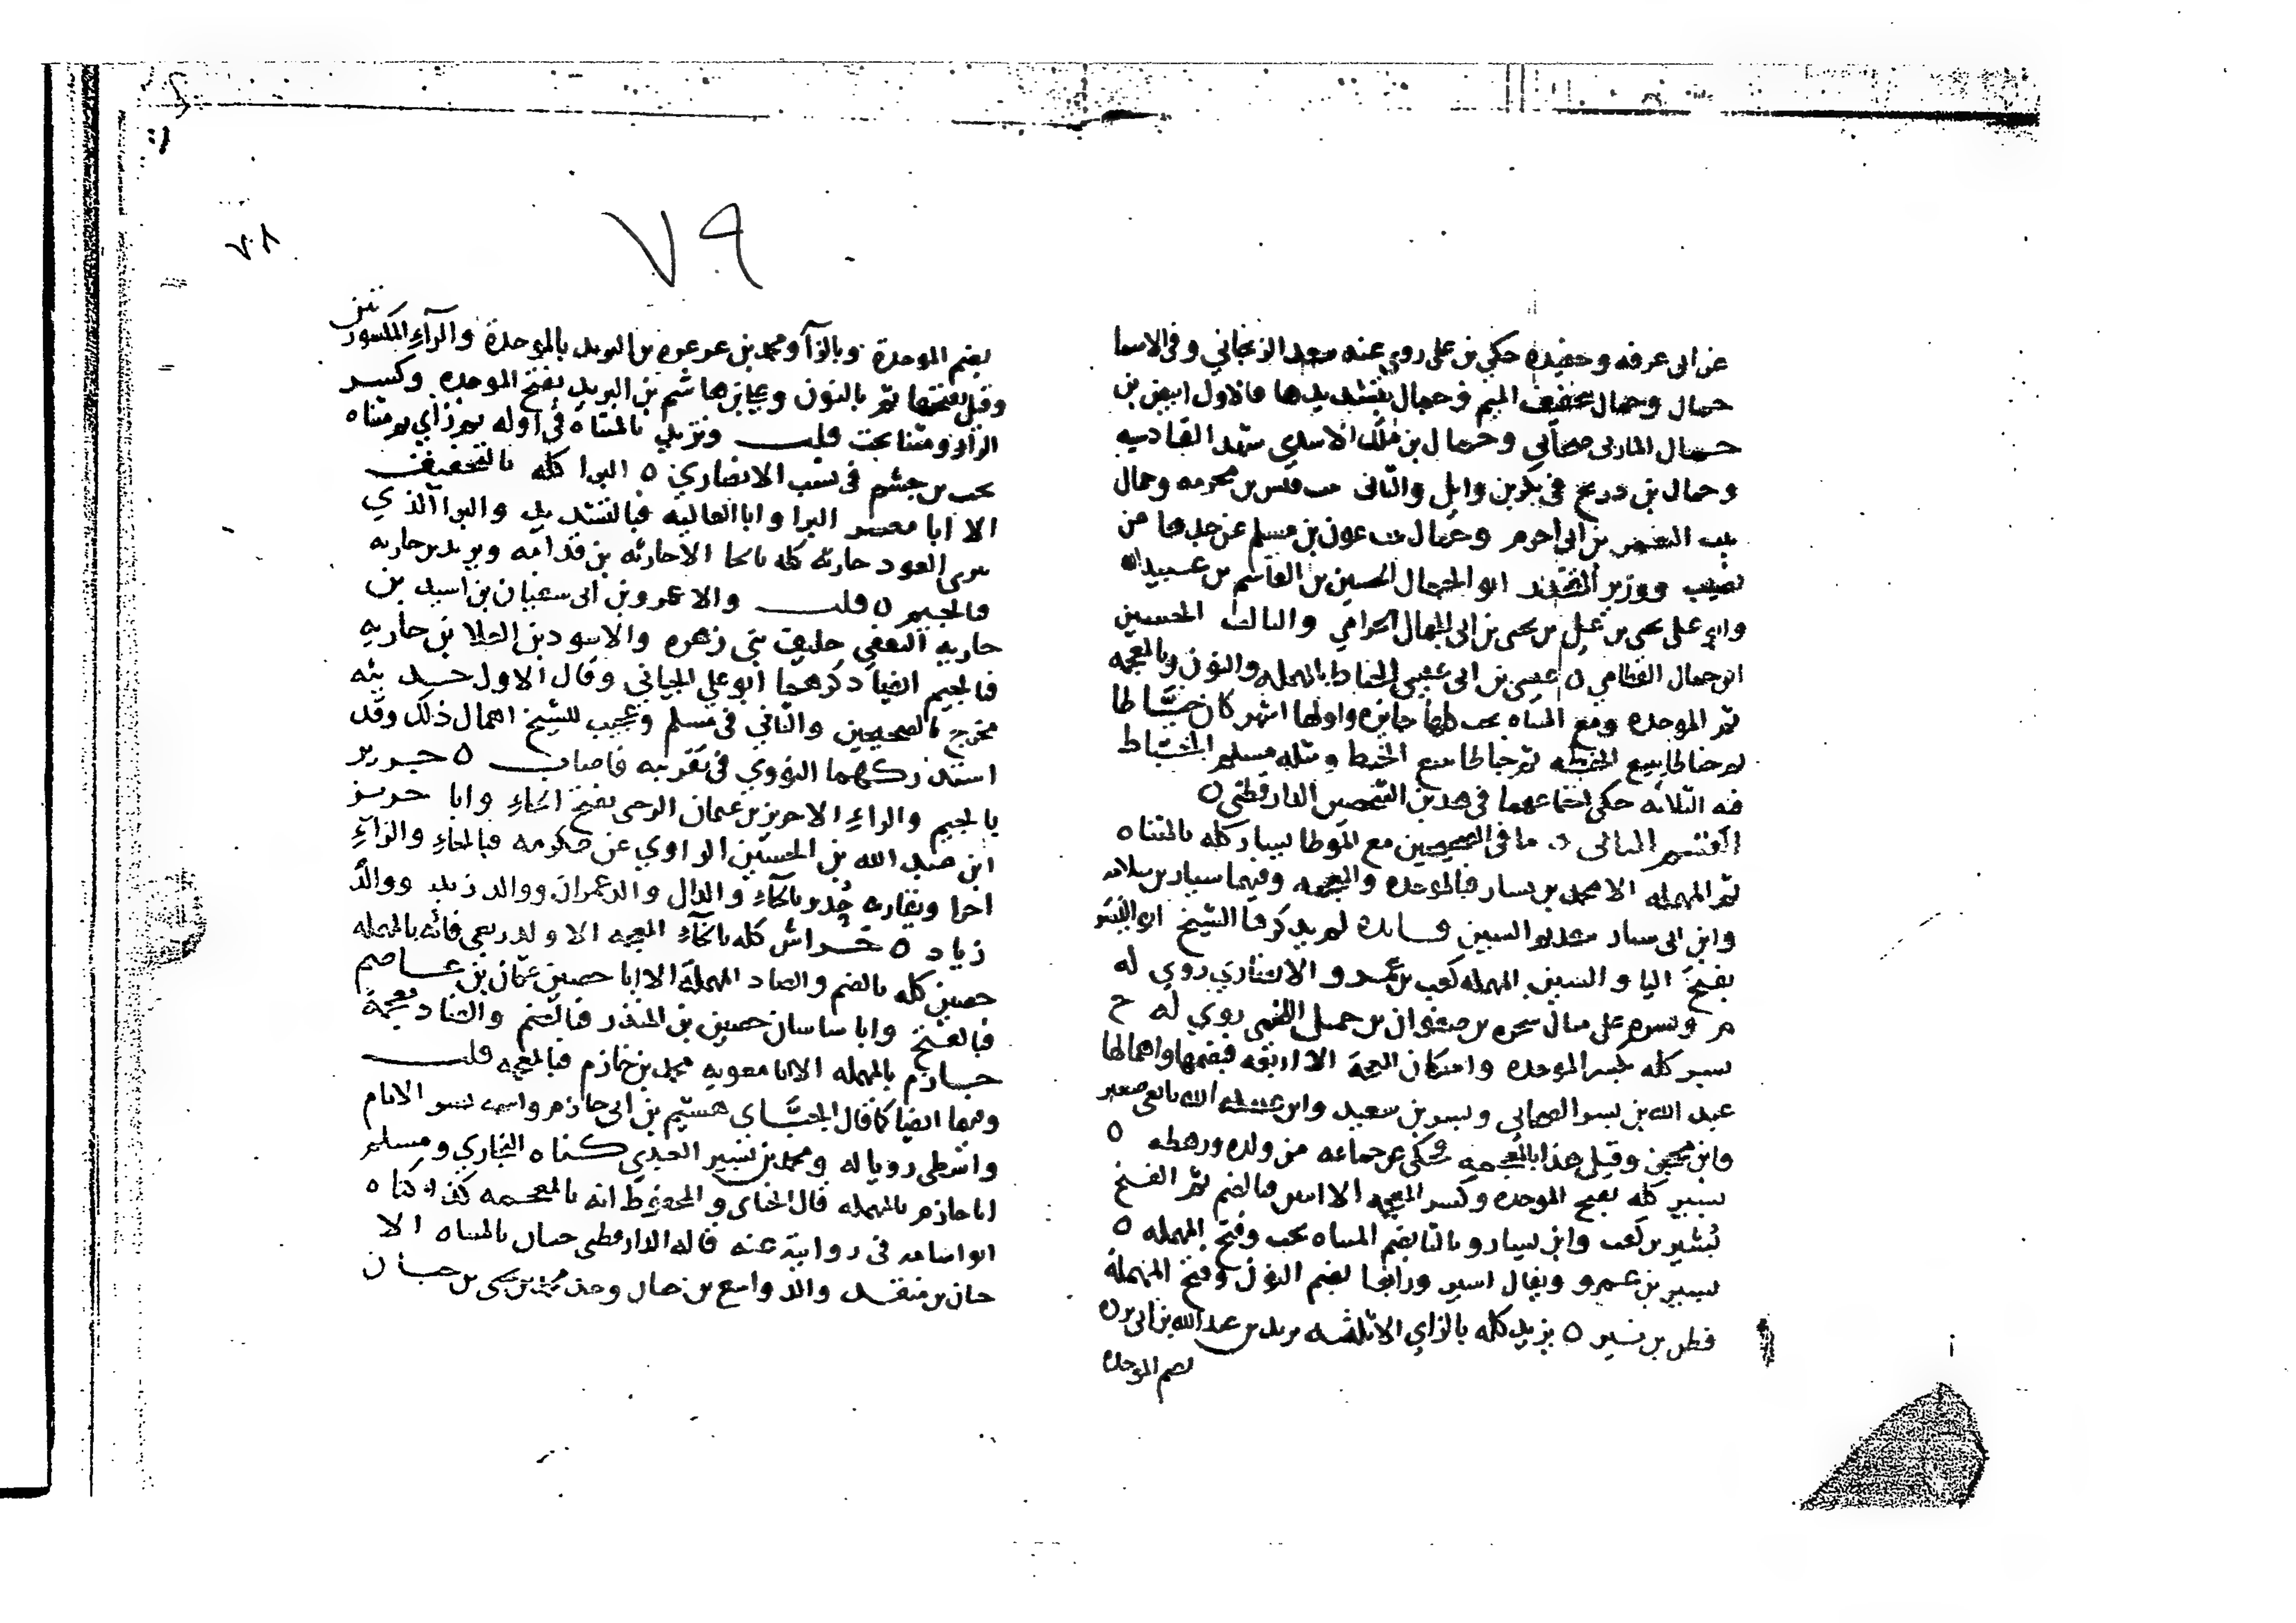 عن ابى عرفه وحفيده حكي بن على روى عنه سعد الزنجاني وفي الاسما
حمال وحمال بتخفيف الميم وحمال بتشديدها فالاول ابيض بن
حمال الماربى صحابي وحمال بن ملك الاسدي شهد القادسيه
وحمال بن دريج في بكر بن وايل والثانى قيس بن محرمه وحمال
بن ابى احرم وحمال عون بن مسلم عن جدها من
نصيب ووزير المقتدر ابو الجمال الحسين بن القاسم بن عبيد الله
وابو على يحيى بن على بن يحيى بن ابى الجمال الحرامي والثالث الحسين
ابن حمال القطامي ٥ عيسى بن ابى عيسى الحناط بالمهمله والنون وبالمعجمه
ثم الموحده ومع المثناه تحت كلها جايزه واولها اشهر كان خيَّاطا
ثم حناطا يبيع الحنطه ثم خباطا يبيع الخبط ومثله مسلم الخباط
فيه الثلاثه حكى اجتماعهما في هذين الشخصين الدارقطنى ٥
القسم الثانى ٥ ما في الصحيحين مع الموطا يسار كله بالمثناه
ثم المهمله الا محمد بن بشار فبالموحده والمعجمه وفيهما سيار بن سلامه
وابن ابى سيار بتقديم السين فايده لم يذكرها الشيخ ابو اليسر
بفتح اليا والسين المهمله كعب بن عمرو الانصاري روي له
م ويسره على مثال شجره بن صفوان بن جميل اللخمى روي له خ
بسر كله بكسر الموحده واسكان المعجمة الا اربعه فبضمها واهمالها
عبد الله بن بسر الصحابى وبسر بن سعيد وابن عبيد الله
وابن محجن وقيل هذا بالمعجمه وحكى عن جماعه من ولده ورهطه ٥
بشير كله بفتح الموحده وكسر المعجمه الا اثنين فبالضم ثم الفتح
بُشير بن كعب وابن يسار وثالثا بضم المثناه تحت وفتح المهمله ٥
يسير بن عمرو ويقال اسير ورابعا بضم النون وفتح المهملة
قطن بن نسير ٥ يزيد كله بالزاي الا ثلاثه بريد بن عبد الله بن ابى برده
بضم الموحده
٧٩
٧٠٨
بضم الموحدة وبالرآ ومحمد بن عرعره بن البرند بالموحدة والرآءِ المكسورتين
وقيل بفتحها ثم بالنون وعلي بن هاشم بن البريد بفتح الموحده وكسر
الراء ومثناه تحت قلت وتزيد بالمثناة في اوله ثم زاي ثم مثناه
تحت بن جشم فى نسب الانصاري ٥ البرا كله بالتخفيف
الا ابا معشر البرا وابا العاليه فبالتشديد والبرا الذي
يبرى العود حارثه كله بالحا الا جاريه بن قدامه ويزيد بن جاريه
فالجيم ٥ قلت والا عمرو بن ابى سفيان بن اسيد بن
جاريه الثقفي حليف بني زهره والاسود بن العلا بن جاريه
فالجيم ايضا ذكرهما ابو علي الجياني وقال الاول حديثه
مخرج بالصحيحين والثاني في مسلم وعجيب للشيخ اهمال ذلك وقد
استدركهما النووي في تقريبه فاصاب ٥ جرير
بالجيم والراءِ الا حريز بن عثمان الرحبى بفتح الحاءِ وابا حريز
ابن عبد الله بن الحسين الراوي عن عكرمه فبالحاءِ والزاءِ
اخرا ويقاربه حُدير بالحاءِ والدال والد عمران ووالد زيد ووالد
زياد ٥ خراش كله بالخآءِ المعجمه الا والد ربعي فانه بالمهمله
حصين كله بالضم والصاد المهملة الا ابا حصين عثمان بن عاصم
فبالفتح وابا ساسان حضين بن المنذر فبالضم والضاد معجمة
حازم بالمهمله الا ابا معويه محمد بن خازم فبالمعجمه قلت
وفيهما ايضا كما قال الجيَّاني هشيم بن ابى خازم واسمه بسر الامام
واسطى رويا له ومحمد بن بشير العبدي كناه البخاري ومسلم
ابا حازم بالمهمله قال الجيانى والمحفوظ انه بالمعجمه كذا كناه
ابو اسامه فى روايته عنه قاله الدارقطني حبان بالمثناه الا
حبان بن منقذ والد واسع بن حبان وجد محمد بن يحيى بن حبان